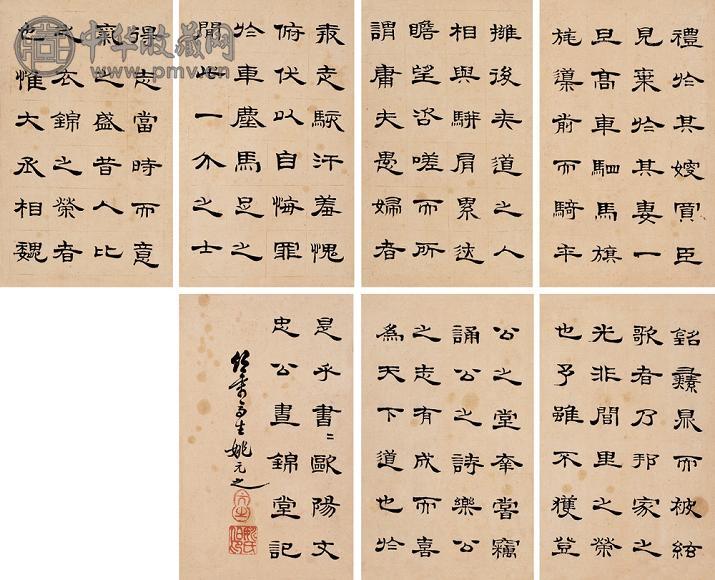 禮於其嫂買臣
見棄於其妻一
旦高車駟馬旗
旄導前而騎卒
擁後夾道之人
相與駢肩累迹
瞻望咨嗟而所
謂庸夫愚婦者
奔走駭汗羞愧
俯伏以自悔罪
於車塵馬足之
間此一介之士
得志當時而意
氣之盛昔人比
之衣錦之榮者
也惟大丞相魏
銘彝鼎而被絃
歌者乃邦家之
光非閭里之榮
也予雖不獲登
公之堂幸嘗竊
誦公之詩樂公
之志有成而喜
為天下道也於
是乎書二歐陽文
忠公晝錦堂記
竹葉亭生姚元之
元之
中华收藏网
www.pmv.cn